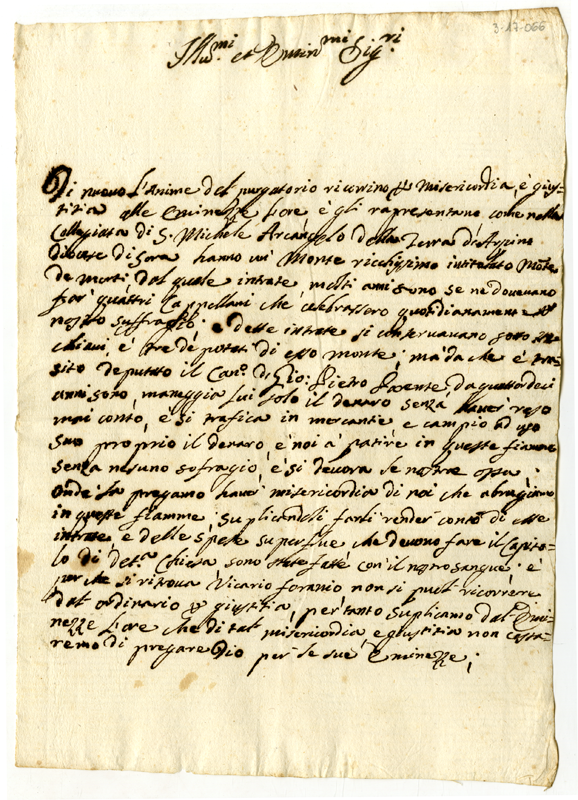 3-17-066
Ill.mi et Emin.mi Sig.ri
Di nuovo l'Anime del purgatorio ricorrino per misericordia, è gius-
titia alle Eminezze Loro è gli rapresentano come nella
Collegiata di S. Michele Arcangelo della Terra d'Arpino
diocese di Sora hanno un' Monte ricchissimo intitolato Monte
de morti, dal quale intrate molti anni sono se ne dovevano
far' quattri Cappellani che celebrassero quotidianamente per
nostro suffragio; e desse intrate si conservavano sotto tre
chiavi, è tre deputati di esso monte; ma da che è
sito deputato il Can.o D. Gio: Pietro da quattordeci
anni sono, maneggia lui solo il denaro senza haver' reso
mai conto, è si trafica in mercantie, e campio ad uso
suo proprio il denaro, è noi à patire in queste fiamme
senza nesuno sofragio, è si devora le nostre ossa;
Onde la pregamo haver misericordia di noi che abrugiamo
in queste fiamme, suplicandoli farli render conto di esse
intrate, e delle spese superflue che devono fare il Capito-
lo di det.a Chiesa sono state fatte con il nostro sangue; è
perche si ritrova Vicario foranio non si può ricorrere
dal ordinario per giustitia, per tanto suplicamo dal' Emi-
nezze Loro che di tal misericordia, e giustitia non cessa-
remo di pregare Dio per le sue Eminezze;